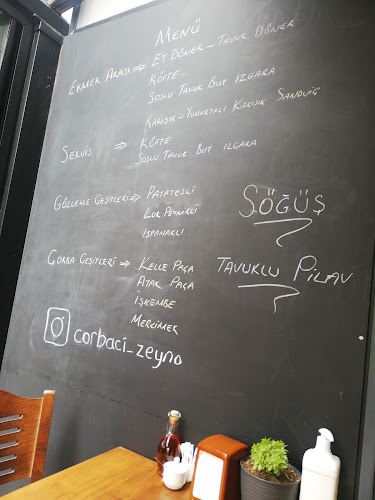 MENÜ
EKMEK ARASI ⇒ ET DÖNER - TAVUK DÖNER
KÖFTE
SOSLU TAVUK BUT IZGARA
KARIŞIK - YUMURTALI KARIŞIK SANDVİÇ
SERVİS ⇒ KÖFTE
SOSLU TAVUK BUT IZGARA
GÖZLEME ÇEŞİTLERİ ⇒ PATATESLİ
LOR PEYNİRLİ
ISPANAKLI
SÖĞÜŞ
ÇORBA ÇEŞİTLERİ ⇒ KELLE PAÇA
AYAK PAÇA
İŞKEMBE
MERCİMEK
TAVUKLU PİLAV
corbaci_zeyno